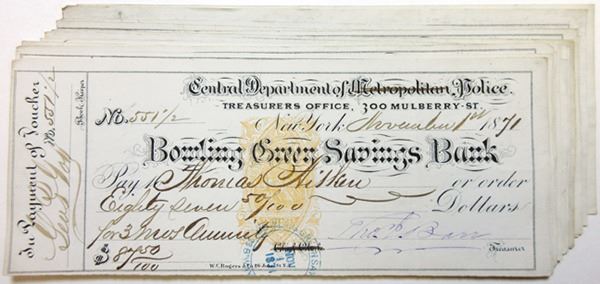 Central Department of Metropolitan Police.
TREASURERS OFFICE, 300 MULBERRY-ST.
No. 551 1/2
New York November 1st 1871
Bowling Green Savings Bank
Pay to Thomas Aitken or order
Eighty Seven 50/100 Dollars
for 3 mos Annuity
$ 87 50/100
Treasurer
In Payment of Voucher
No. 551 1/2
Book Keeper